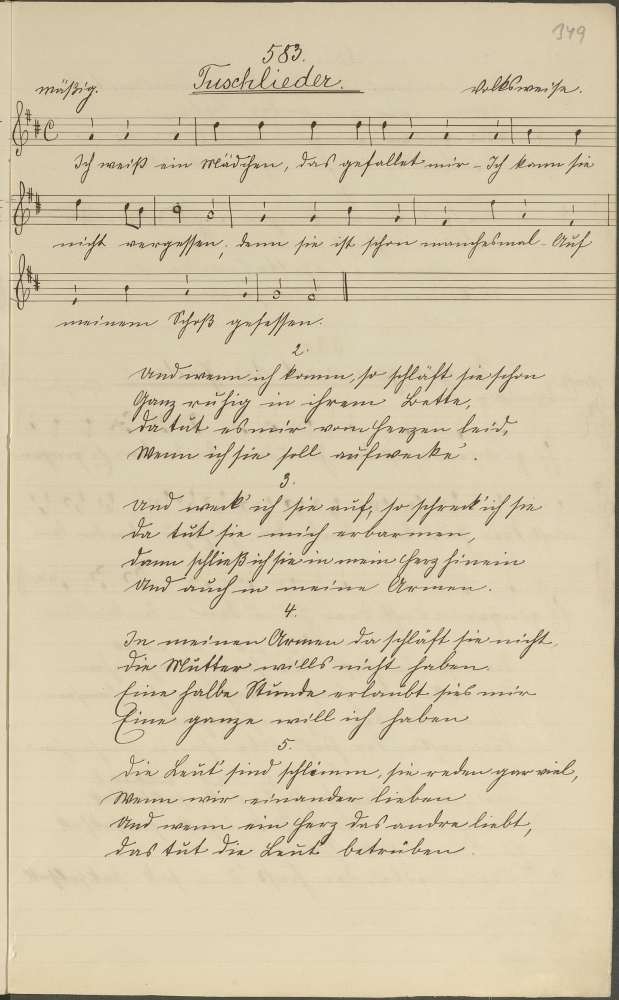 349
583.
Tuschlieder.
mäßig.
Volksweise.
Ich weiß ein Mädchen, das gefallet mir – Ich kann sie
nicht vergessen, denn sie ist schon manchesmal – Auf
meinem Schoß gesessen.
2.
Und wenn ich komm, so schläft sie schon
Ganz ruhig in ihrem Bette,
Da tut es mir vom Herzen leid,
Wenn ich sie soll aufwecke'.
3.
Und weck' ich sie auf, so schreck' ich sie
Da tut sie mich erbarmen,
Dann schließ ich sie in mein Herz hinein
Und auch in meine Armen.
4.
In meinen Armen da schläft sie nicht,
Die Mutter wills nicht haben.
Eine halbe Stunde erlaubt sies mir
Eine ganze will ich haben
5.
Die Leut' sind schlimm, sie reden gar viel,
Wenn wir einander lieben
Und wenn ein Herz das andre liebt,
Das tut die Leut' betrüben.